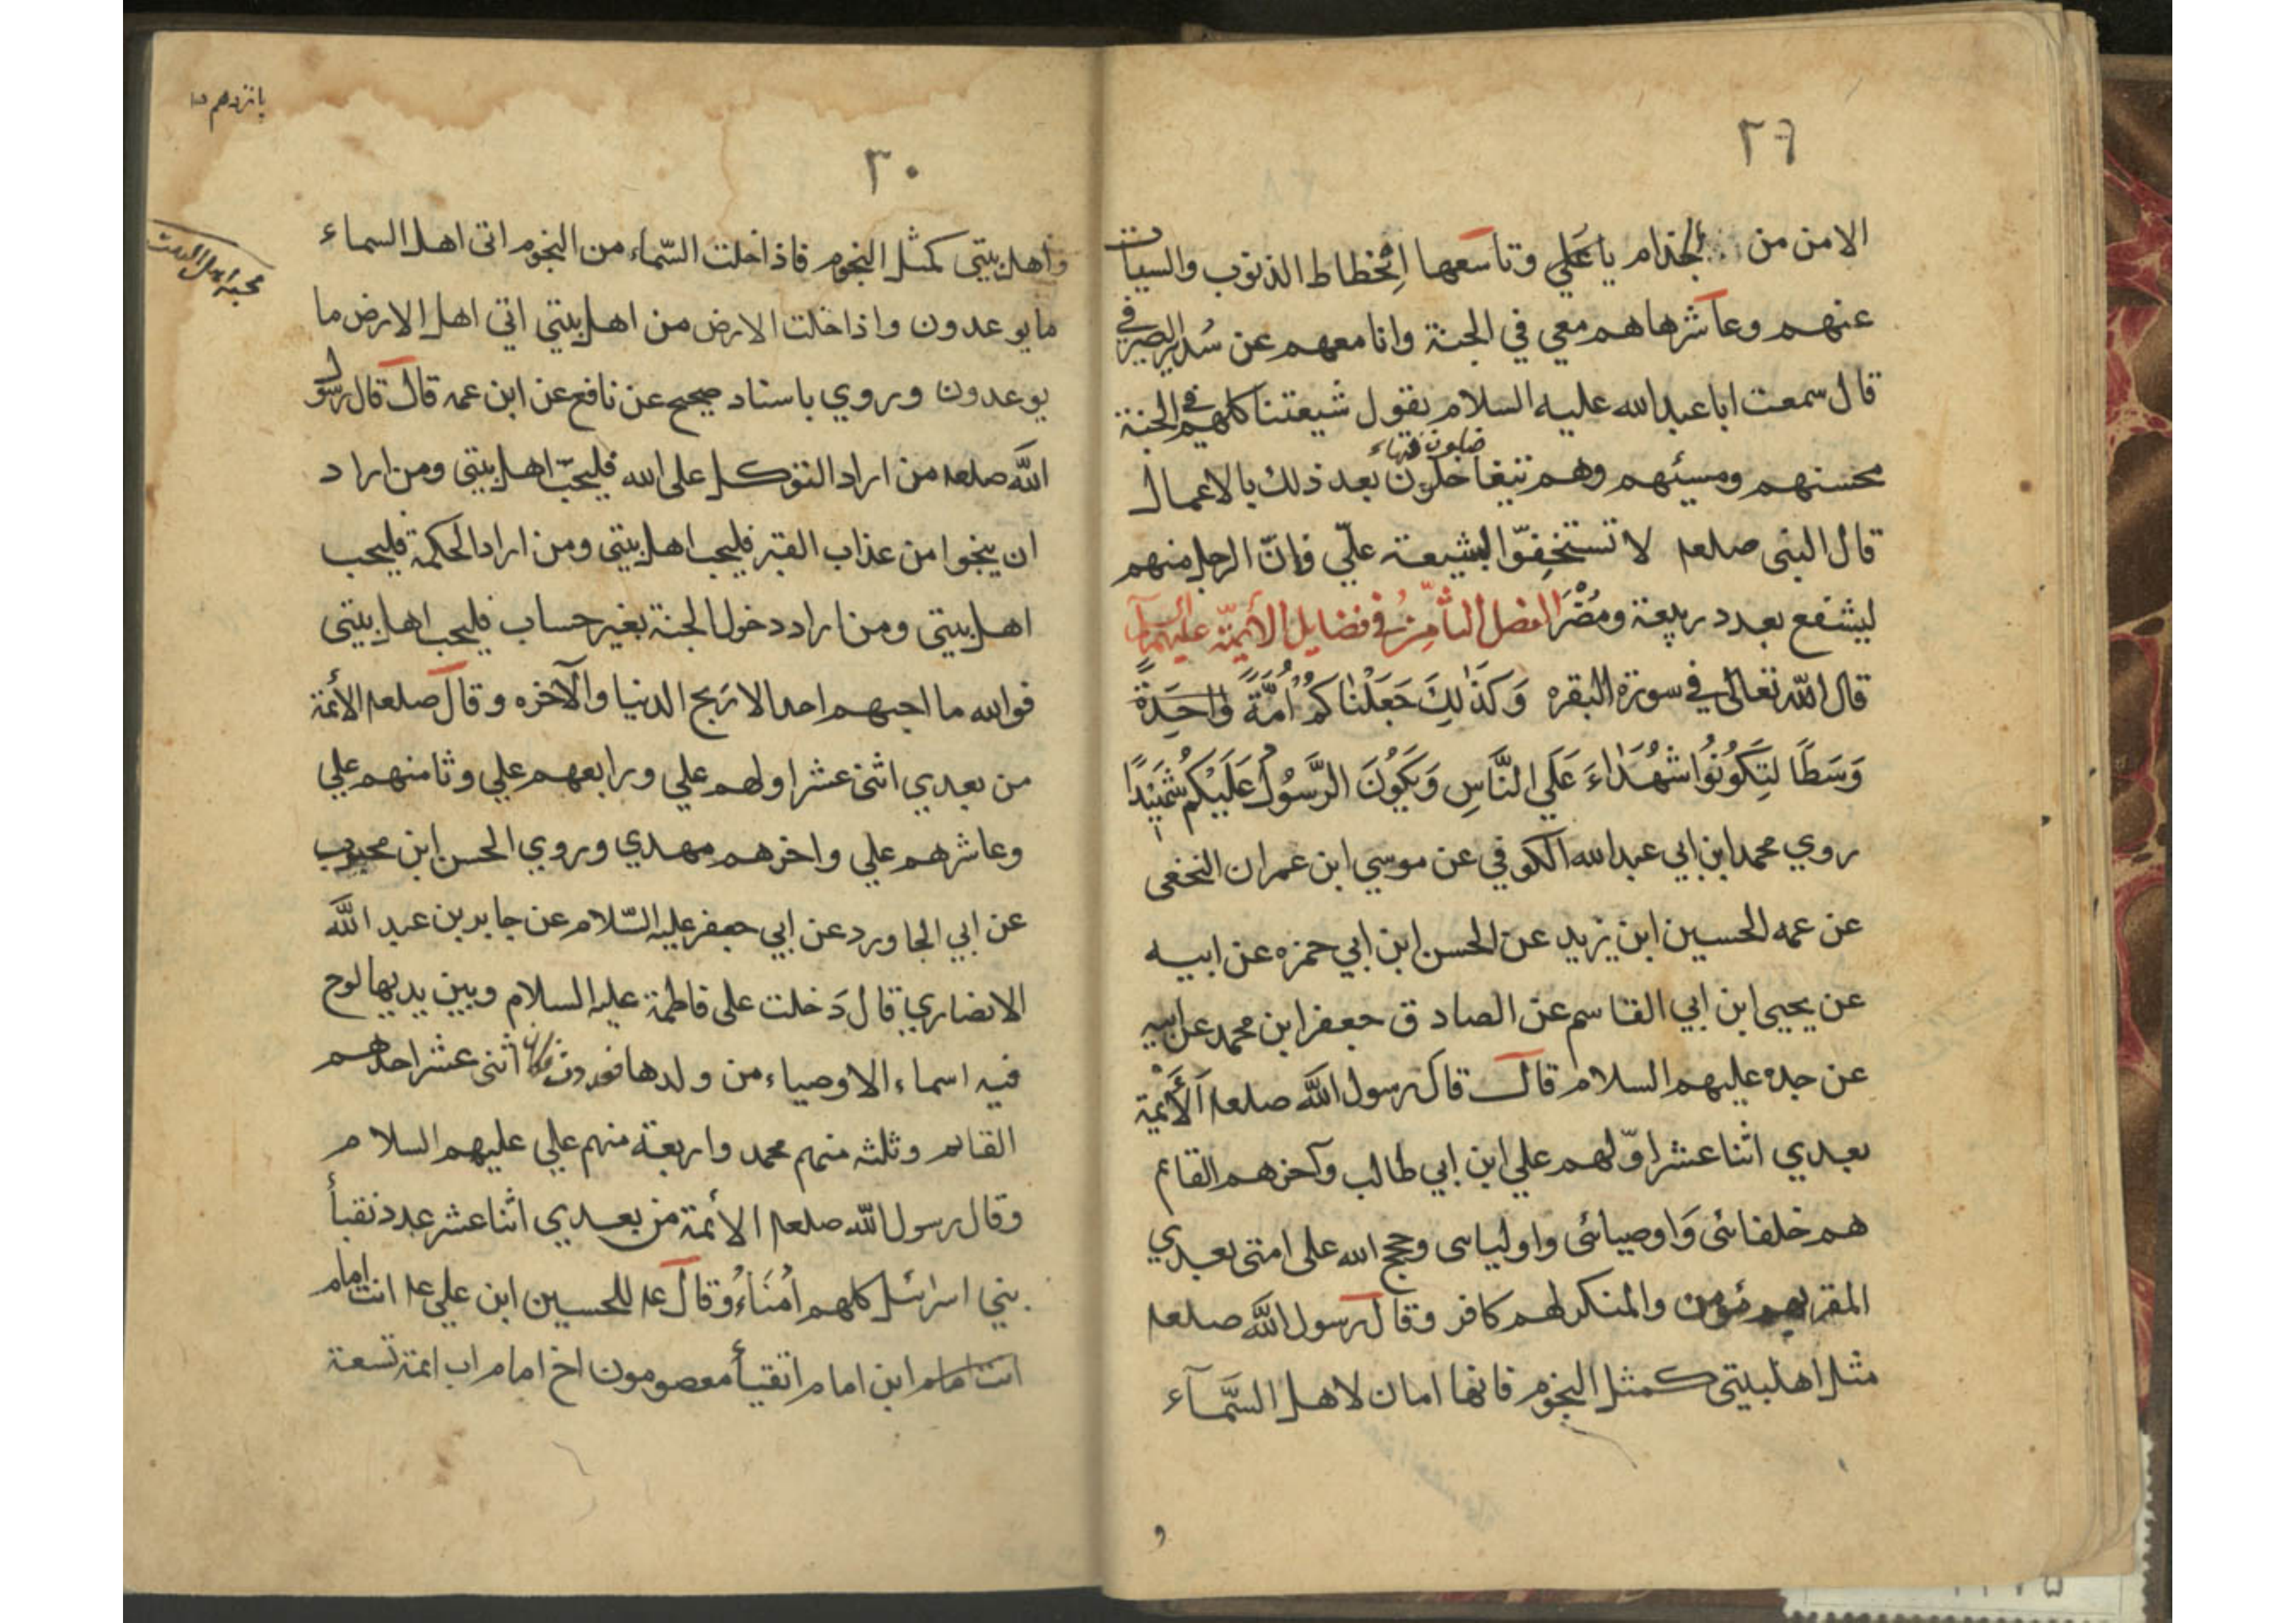 ٢٩
الامن من الجذام يا علي وتاسعها انحطاط الذنوب والسيات
عنهم وعاشرها هم معي في الجنة وانا معهم عن سدير الصيرفي
قال سمعت ابا عبد الله عليه السلام يقول شيعتنا كلهم في الجنة
محسنهم ومسيئهم وهم بعد ذلك بالاعمال
قال النبي صلعم لا تستخفّوا بشيعة عليّ فإنّ الرجل منهم
ليشفع بعدد ربيعة ومُضَر الفصل الثامن في فضايل الأئمّة عليهم السلام
قال اللّه تعالى في سورة البقره وَكَذٰلِكَ جَعَلْنَاكُمْ اُمَّةً وٰاحِدَةً
وَسَطًا لِتَكُونُوا شُهَدٰاءَ عَلَي النَّاسِ وَيَكُونَ الرَّسُولُ عَلَيْكُمْ شَهِيْدًا
روي محمد ابن ابي عبد الله الكوفي عن موسي ابن عمران النخعي
عن عمه الحسين ابن يزيد عن الحسن ابن ابي حمزه عن ابيه
عن يحيى ابن ابي القاسم عن الصادق جعفر ابن محمد عن ابيه
عن جده عليهم السلام قال قال رسول اللّه صلعم الأئمة
بعدي اثنا عشر اوّلهم علي ابن ابي طالب وآخرهم القائم
هم خلفائى وَاوصيائى واوليائى وحجج الله على امتى بعدي
المقر بهم مؤمن والمنكر لهم كافر وقال رسول اللّه صلعم
مثل اهلبيتي كمثل النجوم فانها امان لاهل السَّمآء
و
پانزدهم ١٥
٣٠
واهل بيتى كمثل النجوم فاذا خلت السّماء من النجوم اتى اهل السماء
ما يوعدون واذا خلت الارض من اهل بيتي اتي اهل الارض ما
يوعدون وروي باسناد صحيح عن نافع عن ابن عمر قال قال رسول
اللّه صلعم من اراد التوكل على الله فليحبّ اهل بيتى ومن اراد
ان ينجوا من عذاب القبر فليحب اهل بيتى ومن اراد الحكمة فليحب
اهل بيتى ومن اراد دخول الجنة بغير حساب فليحب اهل بيتى
فوالله ما احبهم احد الا رَبح الدنيا والآخره وقال صلعم الأئمة
من بعدي اثنى عشر اولهم علي ورابعهم علي وثامنهم علي
وعاشرهم علي واخرهم مهدي وروي الحسن ابن محبوب
عن ابي الجاورد عن ابي جعفر عليه السّلام عن جابر بن عبد اللّه
الانصاري قال دَخلت على فاطمة عليه السلام وبين يديها لوح
فيه اسماء الاوصياء من ولدها فعددت فكان اثنى عشر احدهم
القائم وثلثه منهم محمد واربعة منهم علي عليهم السلام
وقال رسول اللّه صلعم الأئمة من بعدي اثنا عشر عدد نقبأ
بني اسرائيل كلهم اُمَنَاءُ وقال عم للحسين ابن علي عم انت امام
انت امام ابن امام اتقيأ معصومون اخ امام اب ائمة تسعة
محبة اهل البيت